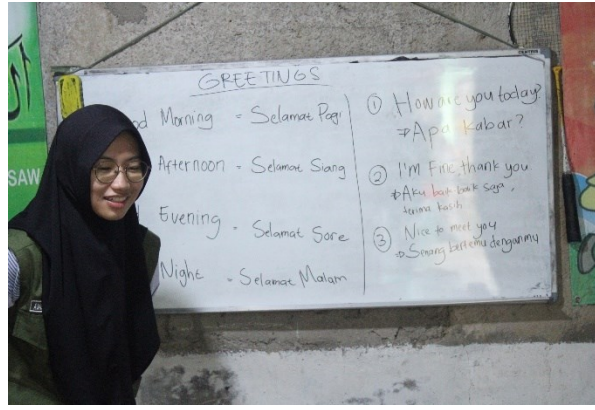 GREETINGS
od Morning = Selamat Pagi
Afternoon = Selamat Siang
Evening = Selamat Sore
Night = Selamat Malam
① How are you today?
⇒ Apa kabar?
② I'm Fine thank you
⇒ Aku baik baik saja,
terima kasih
③ Nice to meet you
⇒ Senang bertemu denganmu
SAW